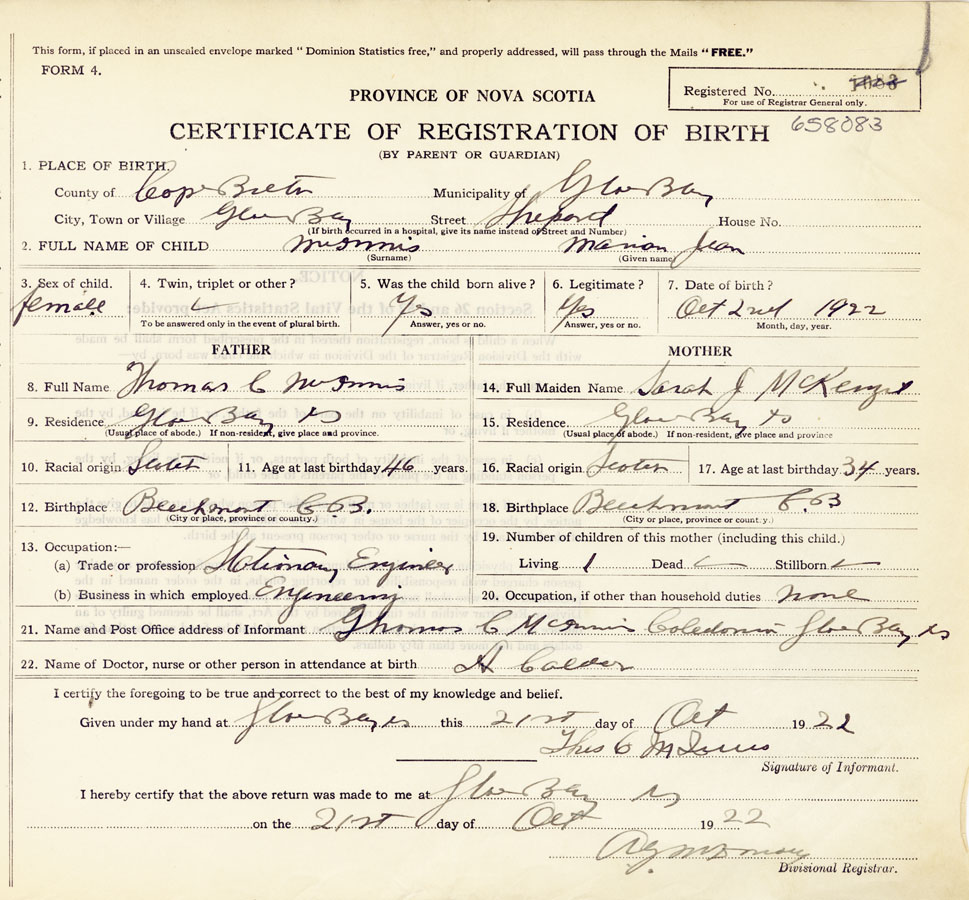 This form, if placed in an unsealed envelope marked " Dominion Statistics free," and properly addressed, will pass through the Mails "FREE."
FORM 4.
Registered No. 1083
For use of Registrar General only.
PROVINCE OF NOVA SCOTIA
CERTIFICATE OF REGISTRATION OF BIRTH 658083
(BY PARENT OR GUARDIAN)
1. PLACE OF BIRTH.
County of Cape Breton Municipality of Glace Bay
City, Town or Village Glace Bay Street Shepard House No.
(If birth occurred in a hospital, give its name instead of Street and Number)
2. FULL NAME OF CHILD McInnis Marion Jean
(Surname) (Given name)
3. Sex of child. 4. Twin, triplet or other? 5. Was the child born alive? 6. Legitimate? 7. Date of birth?
female Yes Yes Oct 2nd 1922
To be answered only in the event of plural birth. Answer, yes or no. Answer, yes or no. Month, day, year.
FATHER MOTHER
8. Full Name Thomas C McInnis 14. Full Maiden Name Sarah J McKenzie
9. Residence Glace Bay NS 15. Residence Glace Bay NS
(Usual place of abode.) If non-resident, give place and province. (Usual place of abode.) If non-resident, give place and province
10. Racial origin Scotch 11. Age at last birthday 46 years. 16. Racial origin Scotch 17. Age at last birthday 34 years.
12. Birthplace Beechmont C B. 18. Birthplace Beechmont C.B
(City or place, province or country.) (City or place, province or country.)
13. Occupation:— 19. Number of children of this mother (including this child.)
(a) Trade or profession Stationary Engineer Living 1 Dead Stillborn
(b) Business in which employed Engineering 20. Occupation, if other than household duties none
21. Name and Post Office address of Informant Thomas C McInnis Caledonia Glace Bay NS
22. Name of Doctor, nurse or other person in attendance at birth A Calder
I certify the foregoing to be true and correct to the best of my knowledge and belief.
Given under my hand at Glace Bay NS this 21st day of Oct 1922
Thos C McInnis
Signature of Informant.
I hereby certify that the above return was made to me at Glace Bay NS
on the 21st day of Oct 1922
Divisional Registrar.